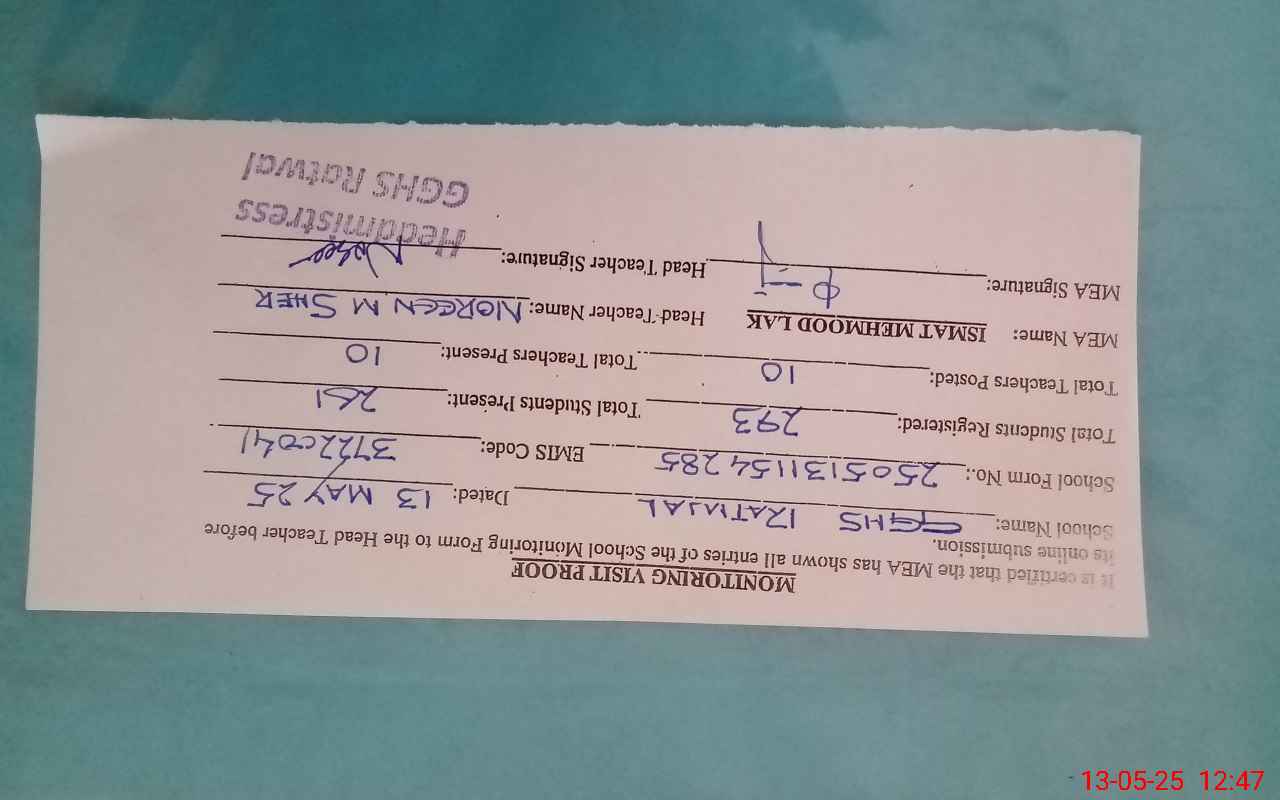 MONITORING VISIT PROOF
It is certified that the MEA has shown all entries of the School Monitoring Form to the Head Teacher before
its online submission.
School Name: GGHS RATWAL Dated: 13 MAY 25
School Form No.: 2505131154285 EMIS Code: 37220041
Total Students Registered: 293 Total Students Present: 261
Total Teachers Posted: 10 Total Teachers Present: 10
MEA Name: ISMAT MEHMOOD LAK Head Teacher Name: NOREEN M SHER
MEA Signature: Head Teacher Signature:
Headmistress
GGHS Ratwal
13-05-25 12:47